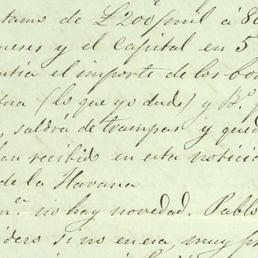 tamo de £200 mil á 80
meses y el Capital en 5
ntia el importe de los bo
(lo que yo dudo) y Bs.
, saldrá de trampas y qued
han recibido en esta noticia
de la Havana
no hay novedad. Pablo
si no en era, muy pr